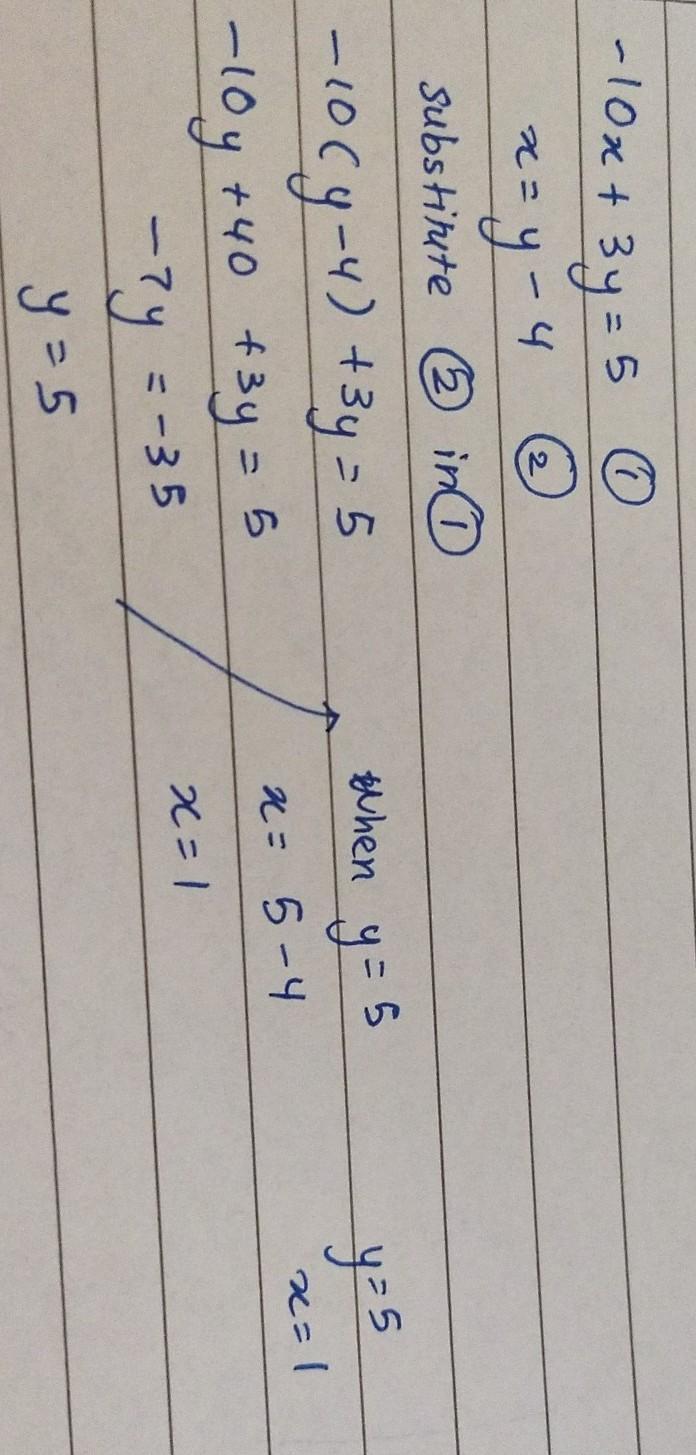 -10x + 3y = 5 ①
x = y - 4 ②
substitute ② in ①
-10(y-4) + 3y = 5
-10y + 40 + 3y = 5
-7y = -35
y = 5
when y = 5
x = 5 - 4
x = 1
y = 5
x = 1